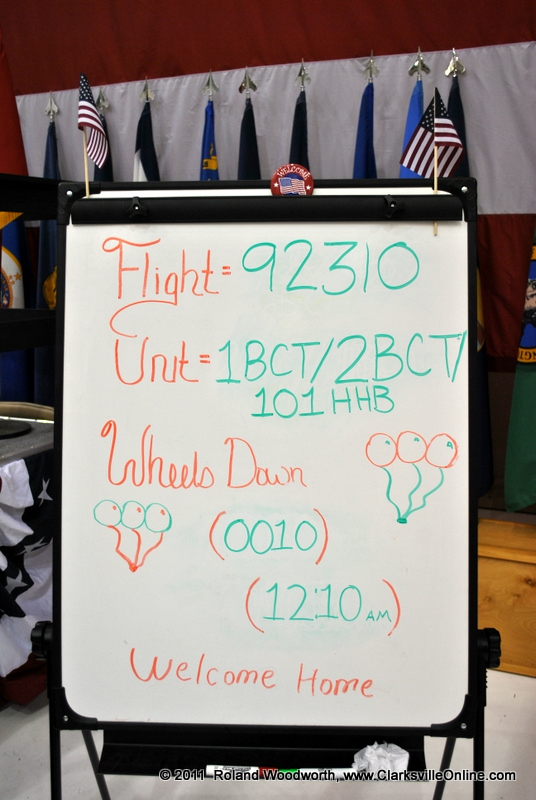 WELCOME
Flight = 92310
Unit = 1BCT/2BCT/
101 HHB
Wheels Down
(0010)
(12:10 AM)
Welcome Home
© 2011 Roland Woodworth, www.ClarksvilleOnline.com